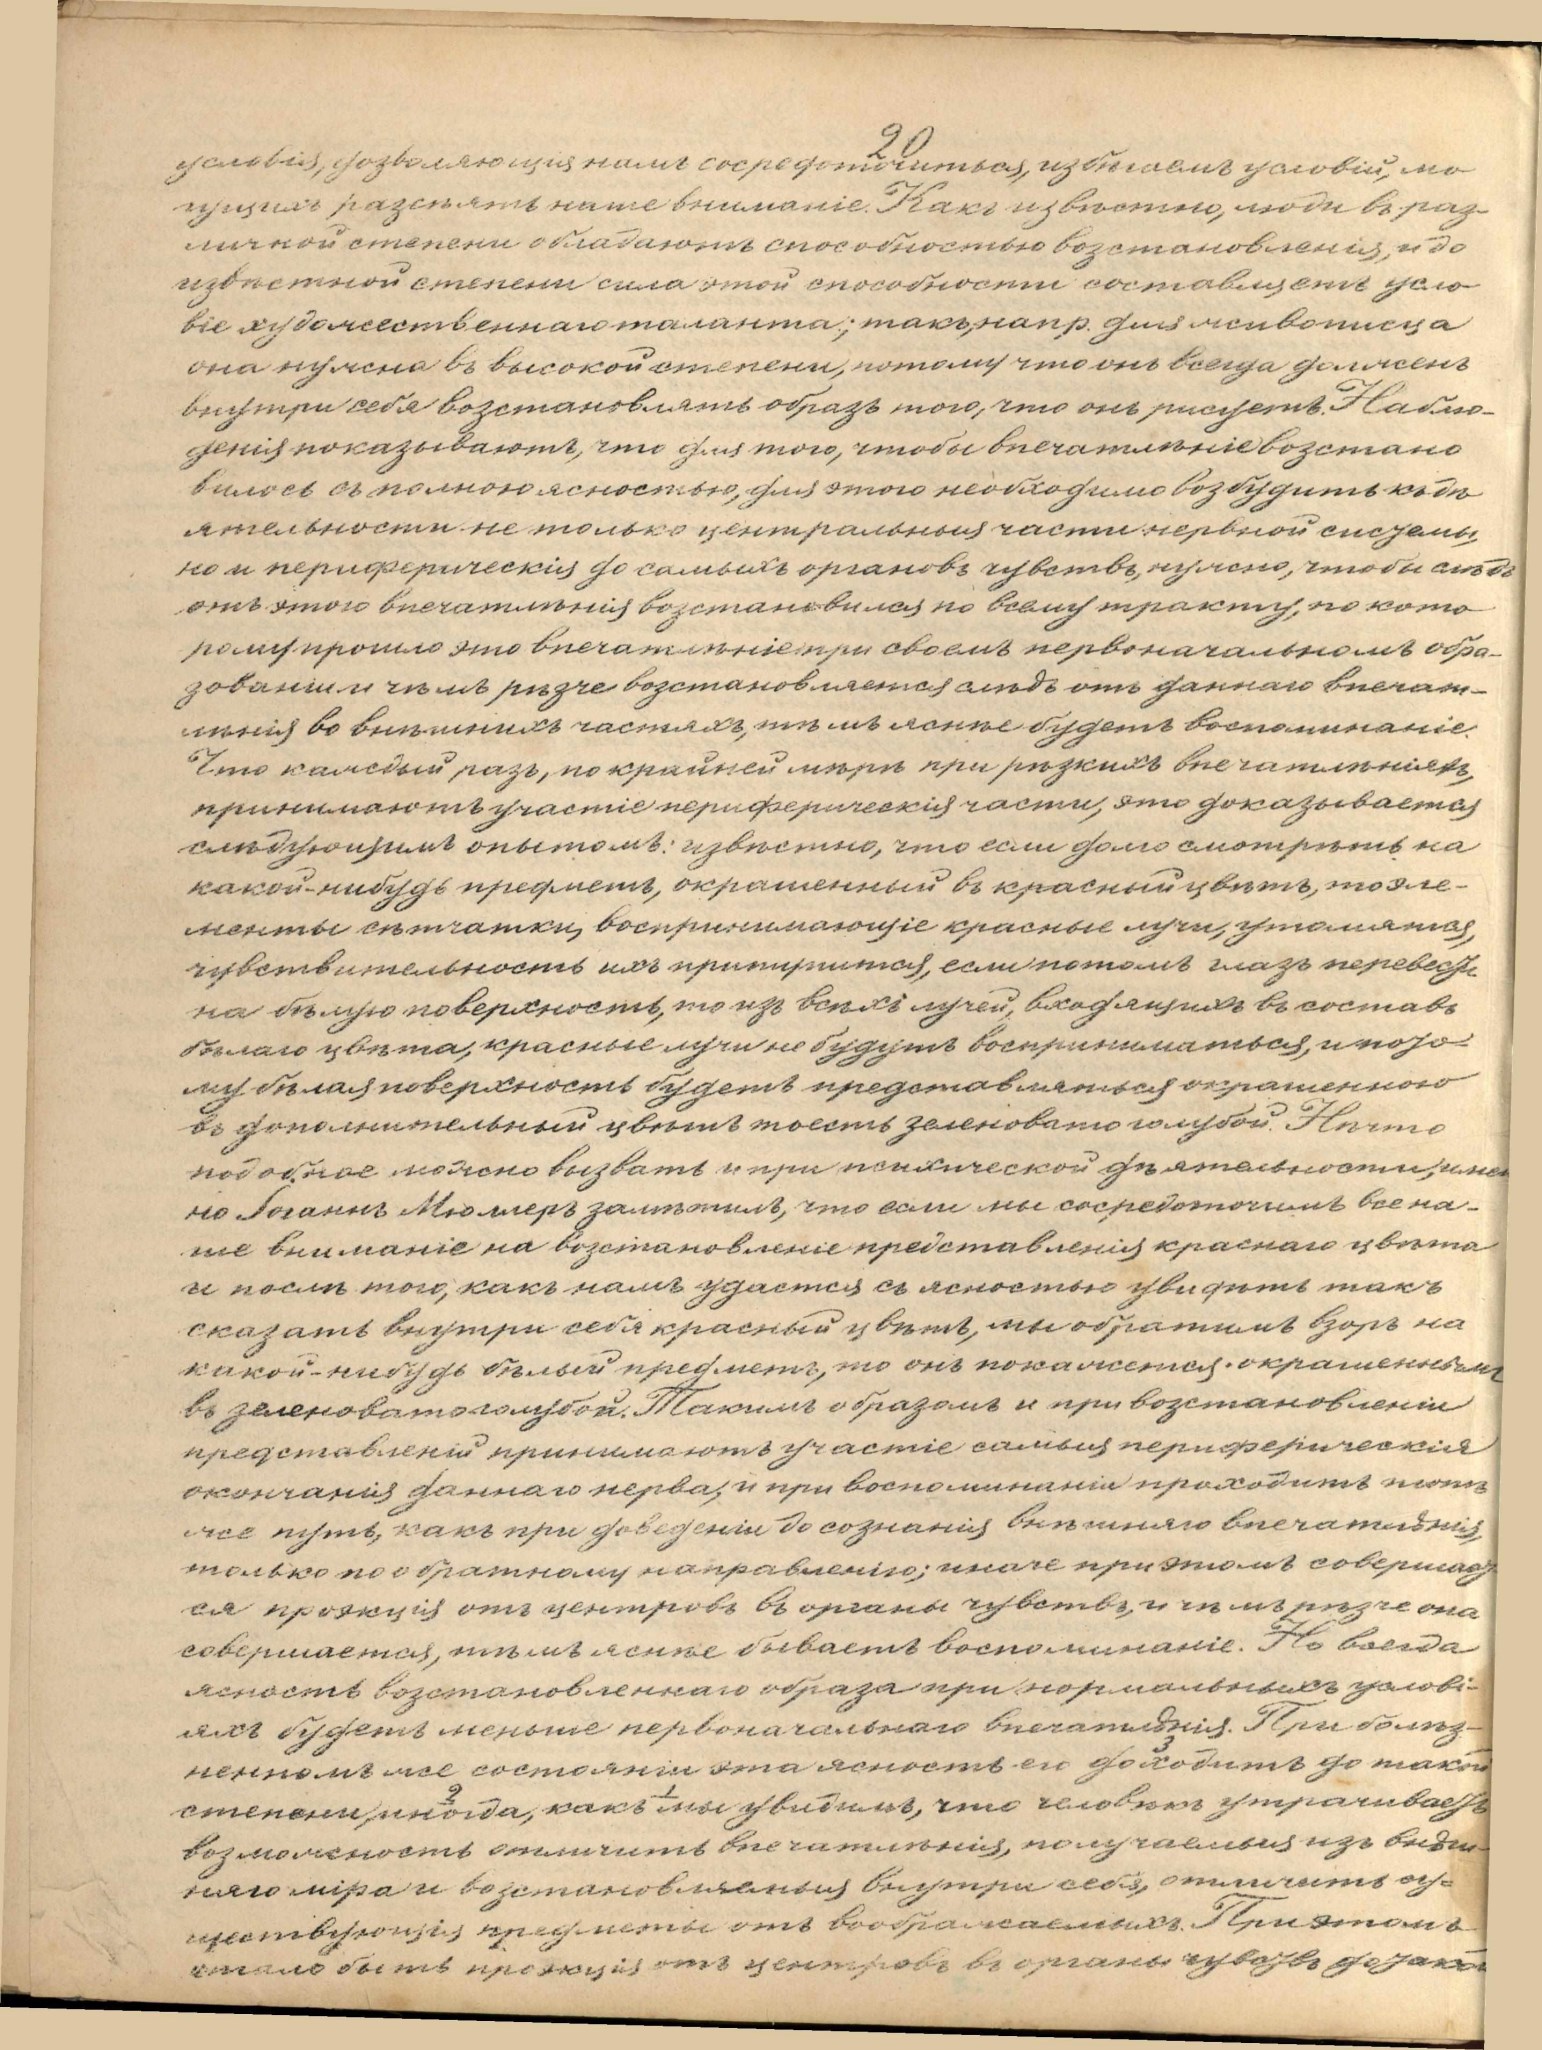 20
условія, дозволяющія намъ сосредоточиться, избѣгаемъ условій, мо
гущихъ разсѣять наше вниманіе. Какъ извѣстно, люди въ раз-
личной степени обладаютъ способностью возстановленія, и до
извѣстной степени сила этой способности составляетъ усло
віе художественнаго таланта; такъ, напр. для живописца
она нужна въ высокой степени, потому что онъ всегда долженъ
внутри себя возстановлять образъ того, что онъ рисуетъ. Наблю-
денія показываютъ, что для того, чтобы впечатлѣніе возстано
вилось съ полною ясностью, для этого необходимо возбудить къ дѣ
ятельности не только центральныя части нервной системы,
но и периферическія до самыхъ органовъ чувствъ, нужно, чтобы слѣдъ
отъ этого впечатлѣнія возстановился по всему тракту, по кото
рому прошло это впечатлѣніе при своемъ первоначальномъ обра-
зованіи и чѣмъ рѣзче возстановляется слѣдъ отъ даннаго впечат-
лѣнія во внѣшнихъ частяхъ, тѣмъ яснѣе будетъ воспоминаніе.
Что каждый разъ, по крайней мѣрѣ при рѣзкихъ впечатлѣніяхъ,
принимаютъ участіе периферическія части, это доказывается
слѣдующимъ опытомъ: извѣстно, что если долго смотрѣть на
какой-нибудь предметъ, окрашенный въ красный цвѣтъ, то эле-
менты сѣтчатки, воспринимающіе красные лучи, утомятся,
чувствительность ихъ притупится, если потомъ глазъ перевести
на бѣлую поверхность, то изъ всѣхъ лучей, входящихъ въ составъ
бѣлаго цвѣта, красные лучи не будутъ восприниматься, и пото-
му бѣлая поверхность будетъ представляться окрашенною
въ дополнительный цвѣтъ тоесть зеленовато голубой. Нѣчто
подобное можно вызвать и при психической дѣятельности, имен
но Іоганнъ Мюллеръ замѣтилъ, что если мы сосредоточимъ все на-
ше вниманіе на возстановленіе представленія краснаго цвѣта
и послѣ того, какъ намъ удастся съ ясностью увидѣть такъ
сказать внутри себя красный цвѣтъ, мы обратимъ взоръ на
какой-нибудь бѣлый предметъ, то онъ покажется окрашеннымъ
въ зеленоватоголубой. Такимъ образомъ и при возстановленіи
представленій принимаютъ участіе самыя периферическія
окончанія даннаго нерва, и при воспоминаніи проходитъ тотъ
же путь, какъ при доведеніи до сознанія внѣшняго впечатлѣнія,
только по обратному направленію; иначе при этомъ совершает
ся проэкція отъ центровъ въ органы чувствъ, и чѣмъ рѣзче она
совершается, тѣмъ яснѣе бываетъ воспоминаніе. Но всегда
ясность возстановленнаго образа при нормальныхъ услові-
яхъ будетъ меньше первоначальнаго впечатлѣнія. При болѣз-
ненномъ же состояніи эта ясность его доходитъ до такой
степени, иногда, какъ мы увидимъ, что человѣкъ утрачиваетъ
возможность отличить впечатлѣнія, получаемыя изъ внѣш-
няго міра и возстановляемыя внутри себя, отличить су-
ществующія предметы отъ воображаемыхъ. При этомъ
стало быть проэкція отъ центровъ въ органы чувствъ до такой